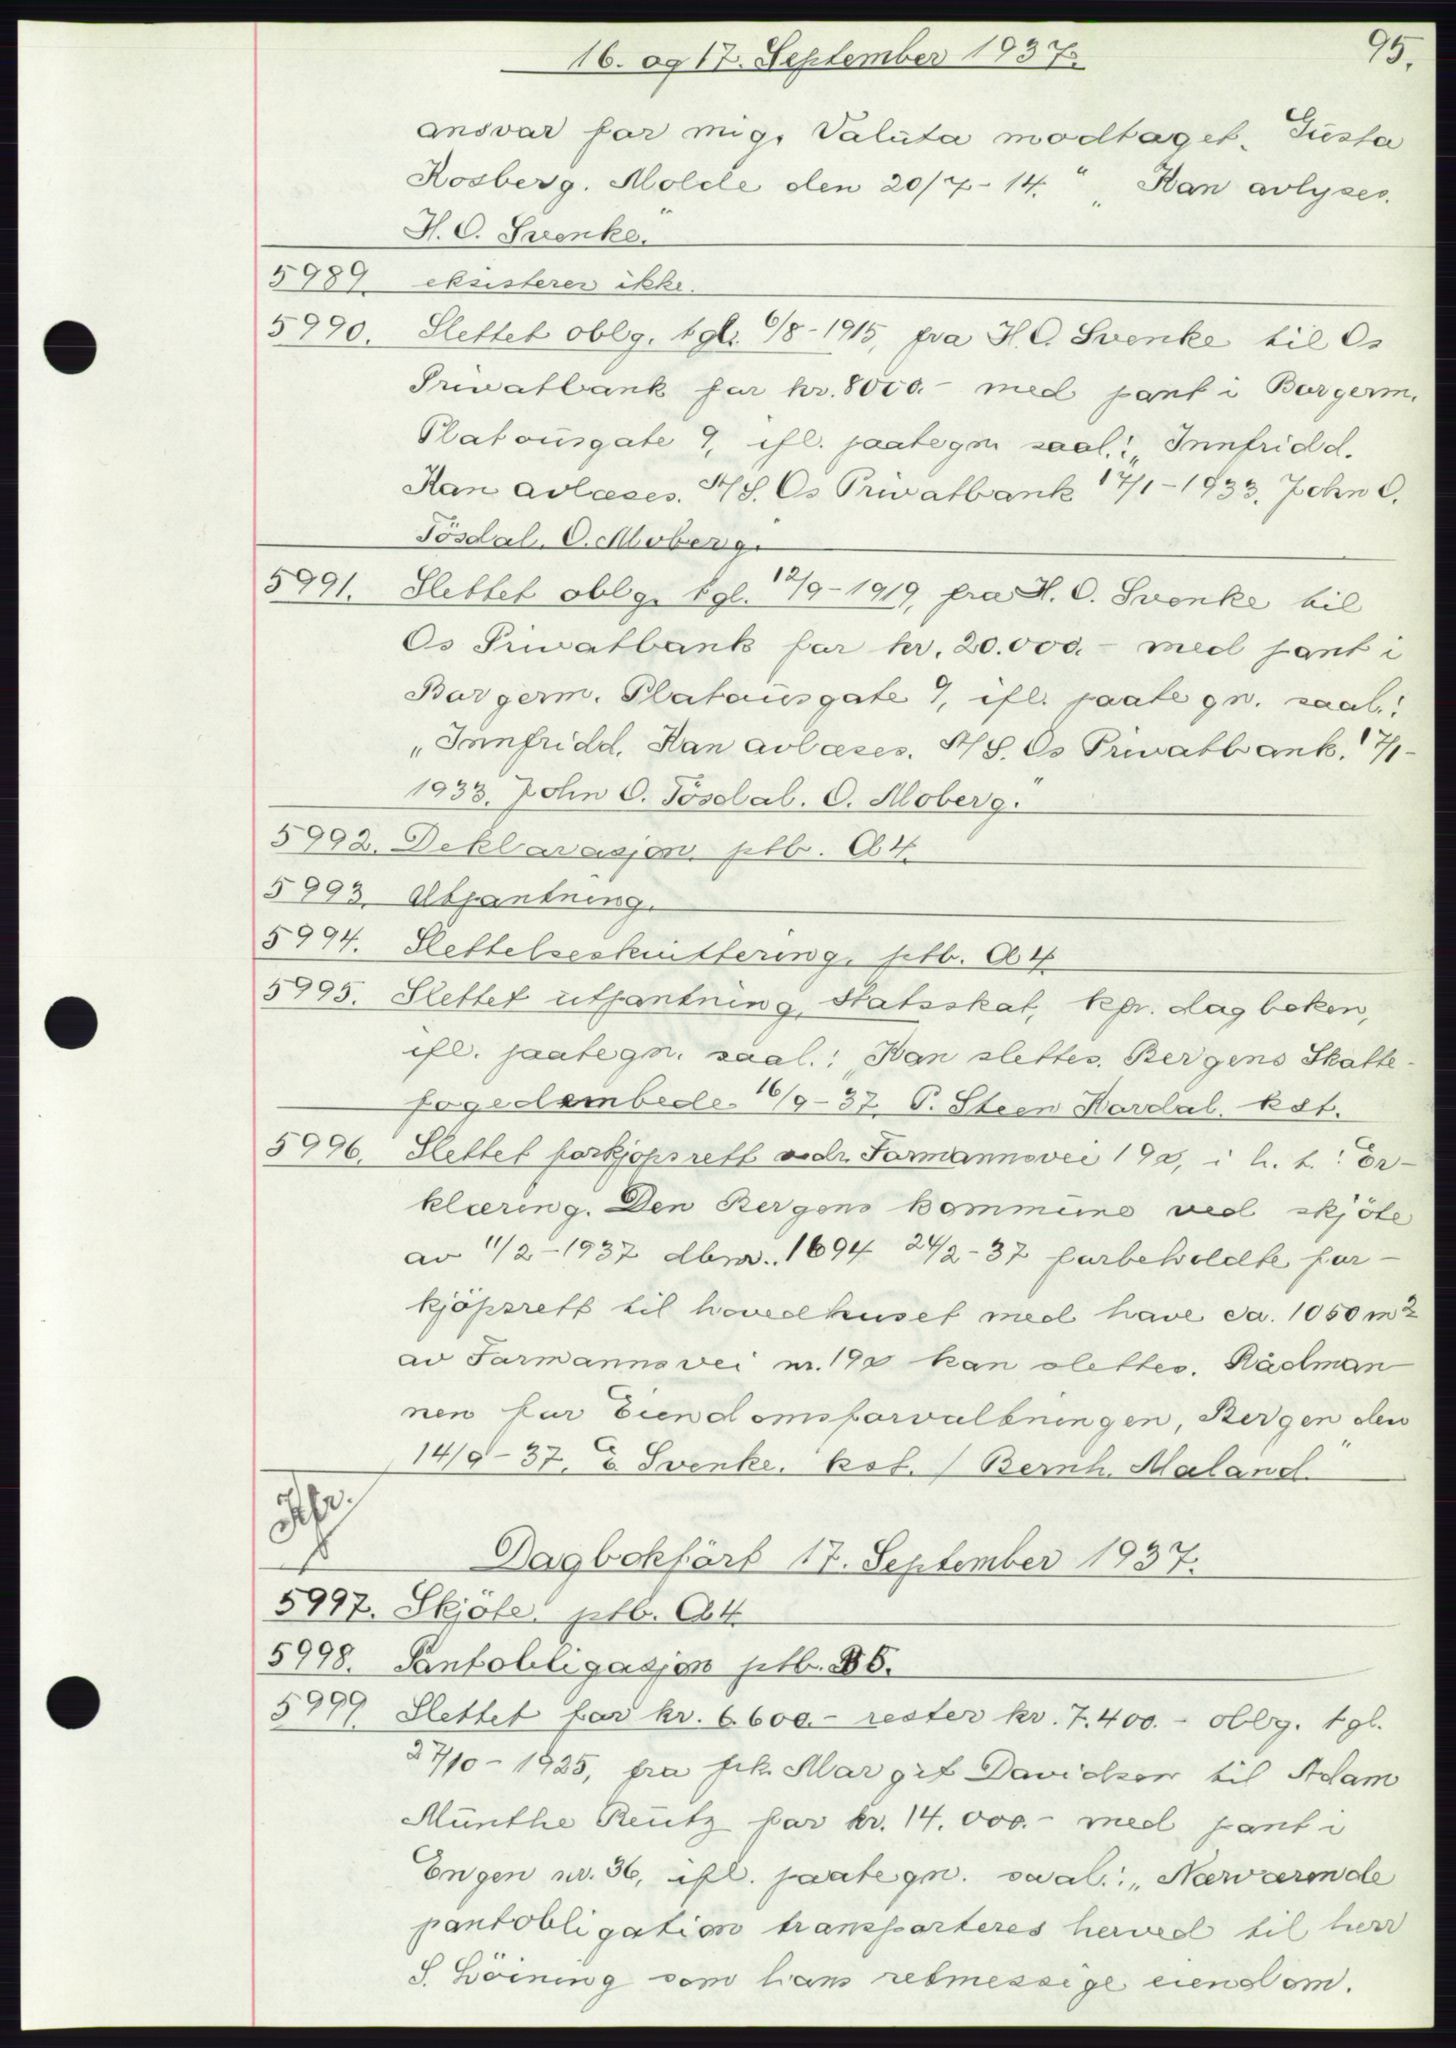 16. og 17. September 1937.
95.
ansvar for mig. Valüta modtaget. Gusta
Rosberg. Molde den 20/7-14." „Kan avlyses.
H. O. Svenke."
5989. eksisterer ikke.
5990. Slettet oblg. tgl. 6/8-1915, fra H. O. Svenke til Os
Privatbank for kr. 8000.- med pant i Borgerm.
Platousgate 9, ifl. paategn saal.: „Innfridd.
Kan avlæses. A/S. Os Privatbank 17/1-1933. John O.
Tösdal. O. Moberg."
5991. Slettet oblg. tgl. 12/9-1919, fra H. O. Svenke til
Os Privatbank for kr. 20.000.- med pant i
Borgerm. Platousgate 9, ifl. paategn. saal.:
„Innfridd. Kan avlæses. A/S. Os Privatbank. 17/1-
1933. John O. Tösdal. O. Moberg."
5992. Deklarasjon. ptb. A 4.
5993. Utpantning.
5994. Slettelseskvittering. ptb. A 4
5995. Slettet utpantning, Statsskat, kfr. dagboken,
ifl. paategn. saal.: „Kan slettes. Bergens Skatte-
fogedembede. 16/9-37. P. Steen Hardal. kst.
5996. Slettet forkjöpsrett vedr. Formannsvei 19a, i h. t.: Er-
klæring. Den Bergens kommune ved skjöte
av 11/2-1937 dbnr. 1694 24/2-37 forbeholdte for-
kjöpsrett til hovedhuset med have ca. 1050 m2
av Formannsvei nr. 19a kan slettes. Rådman
nen for Eiendomsforvaltningen, Bergen den
14/9-37. E. Svenke. kst. / Bernh. Maland."
Dagbokfört 17. September 1937.
5997. Skjöte. ptb. A 4.
5998. Pantobligasjon ptb. B 6.
5999. Slettet for kr. 6.600.- rester kr. 7.400.- oblg. tgl.
27/10-1925, fra frk. Margit Davidsen til Adam
Münthe Reutz for kr. 14.000.- med pant i
Engen nr. 36, ifl. paategn. saal.: „Nærværende
pantobligation transporteres herved til herr
S. Löining som hans retmessige eiendom.